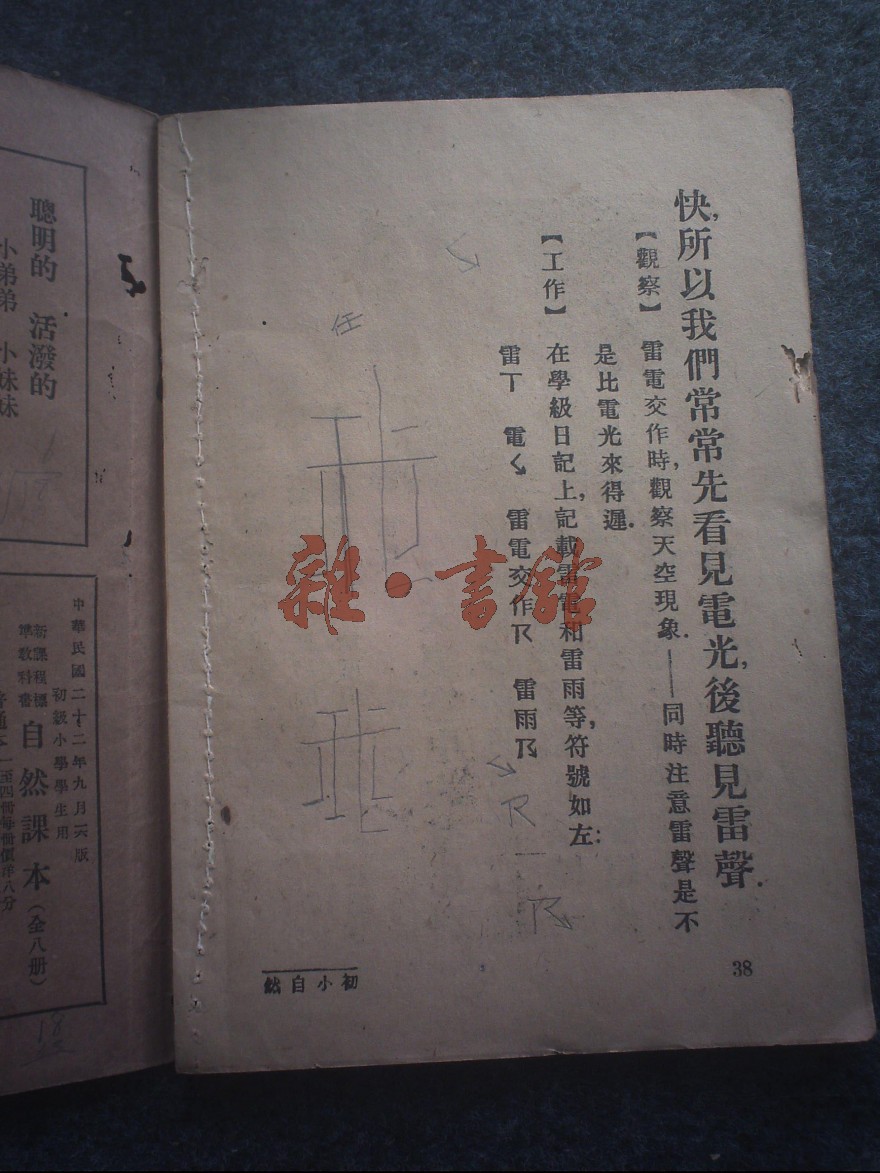 快,所以我們常常先看見電光,後聽見雷聲.
【觀察】 雷電交作時,觀察天空現象.——同時注意雷聲是不
是比電光來得遲.
【工作】 在學級日記上,記載雷電和雷雨等,符號如左:
雷 電 雷電交作 雷雨
38
初小自然
任
雜·書館
聰明的 活潑的
小弟弟 小妹妹
中華民國二十二年九月六版
初級小學學生用
新課程標
準教科書
自然課本(全八册)
18